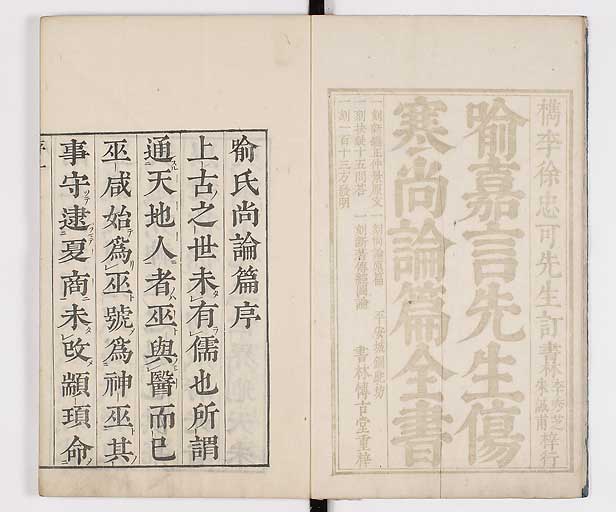 檇李徐忠可先生訂書林
李秀芝
朱誠甫
梓行
喻嘉言先生傷
寒尚論篇全書
一刻尚論
一刻
平安城
書林傳古堂重梓
一刻
一刻 十五問答
一刻一百十三方發明
喻氏尚論篇序
上古之世未有儒也所謂
通天地人者巫與醫而已
巫咸始為巫號為神巫其
事守逮夏商未改顓頊命
序一